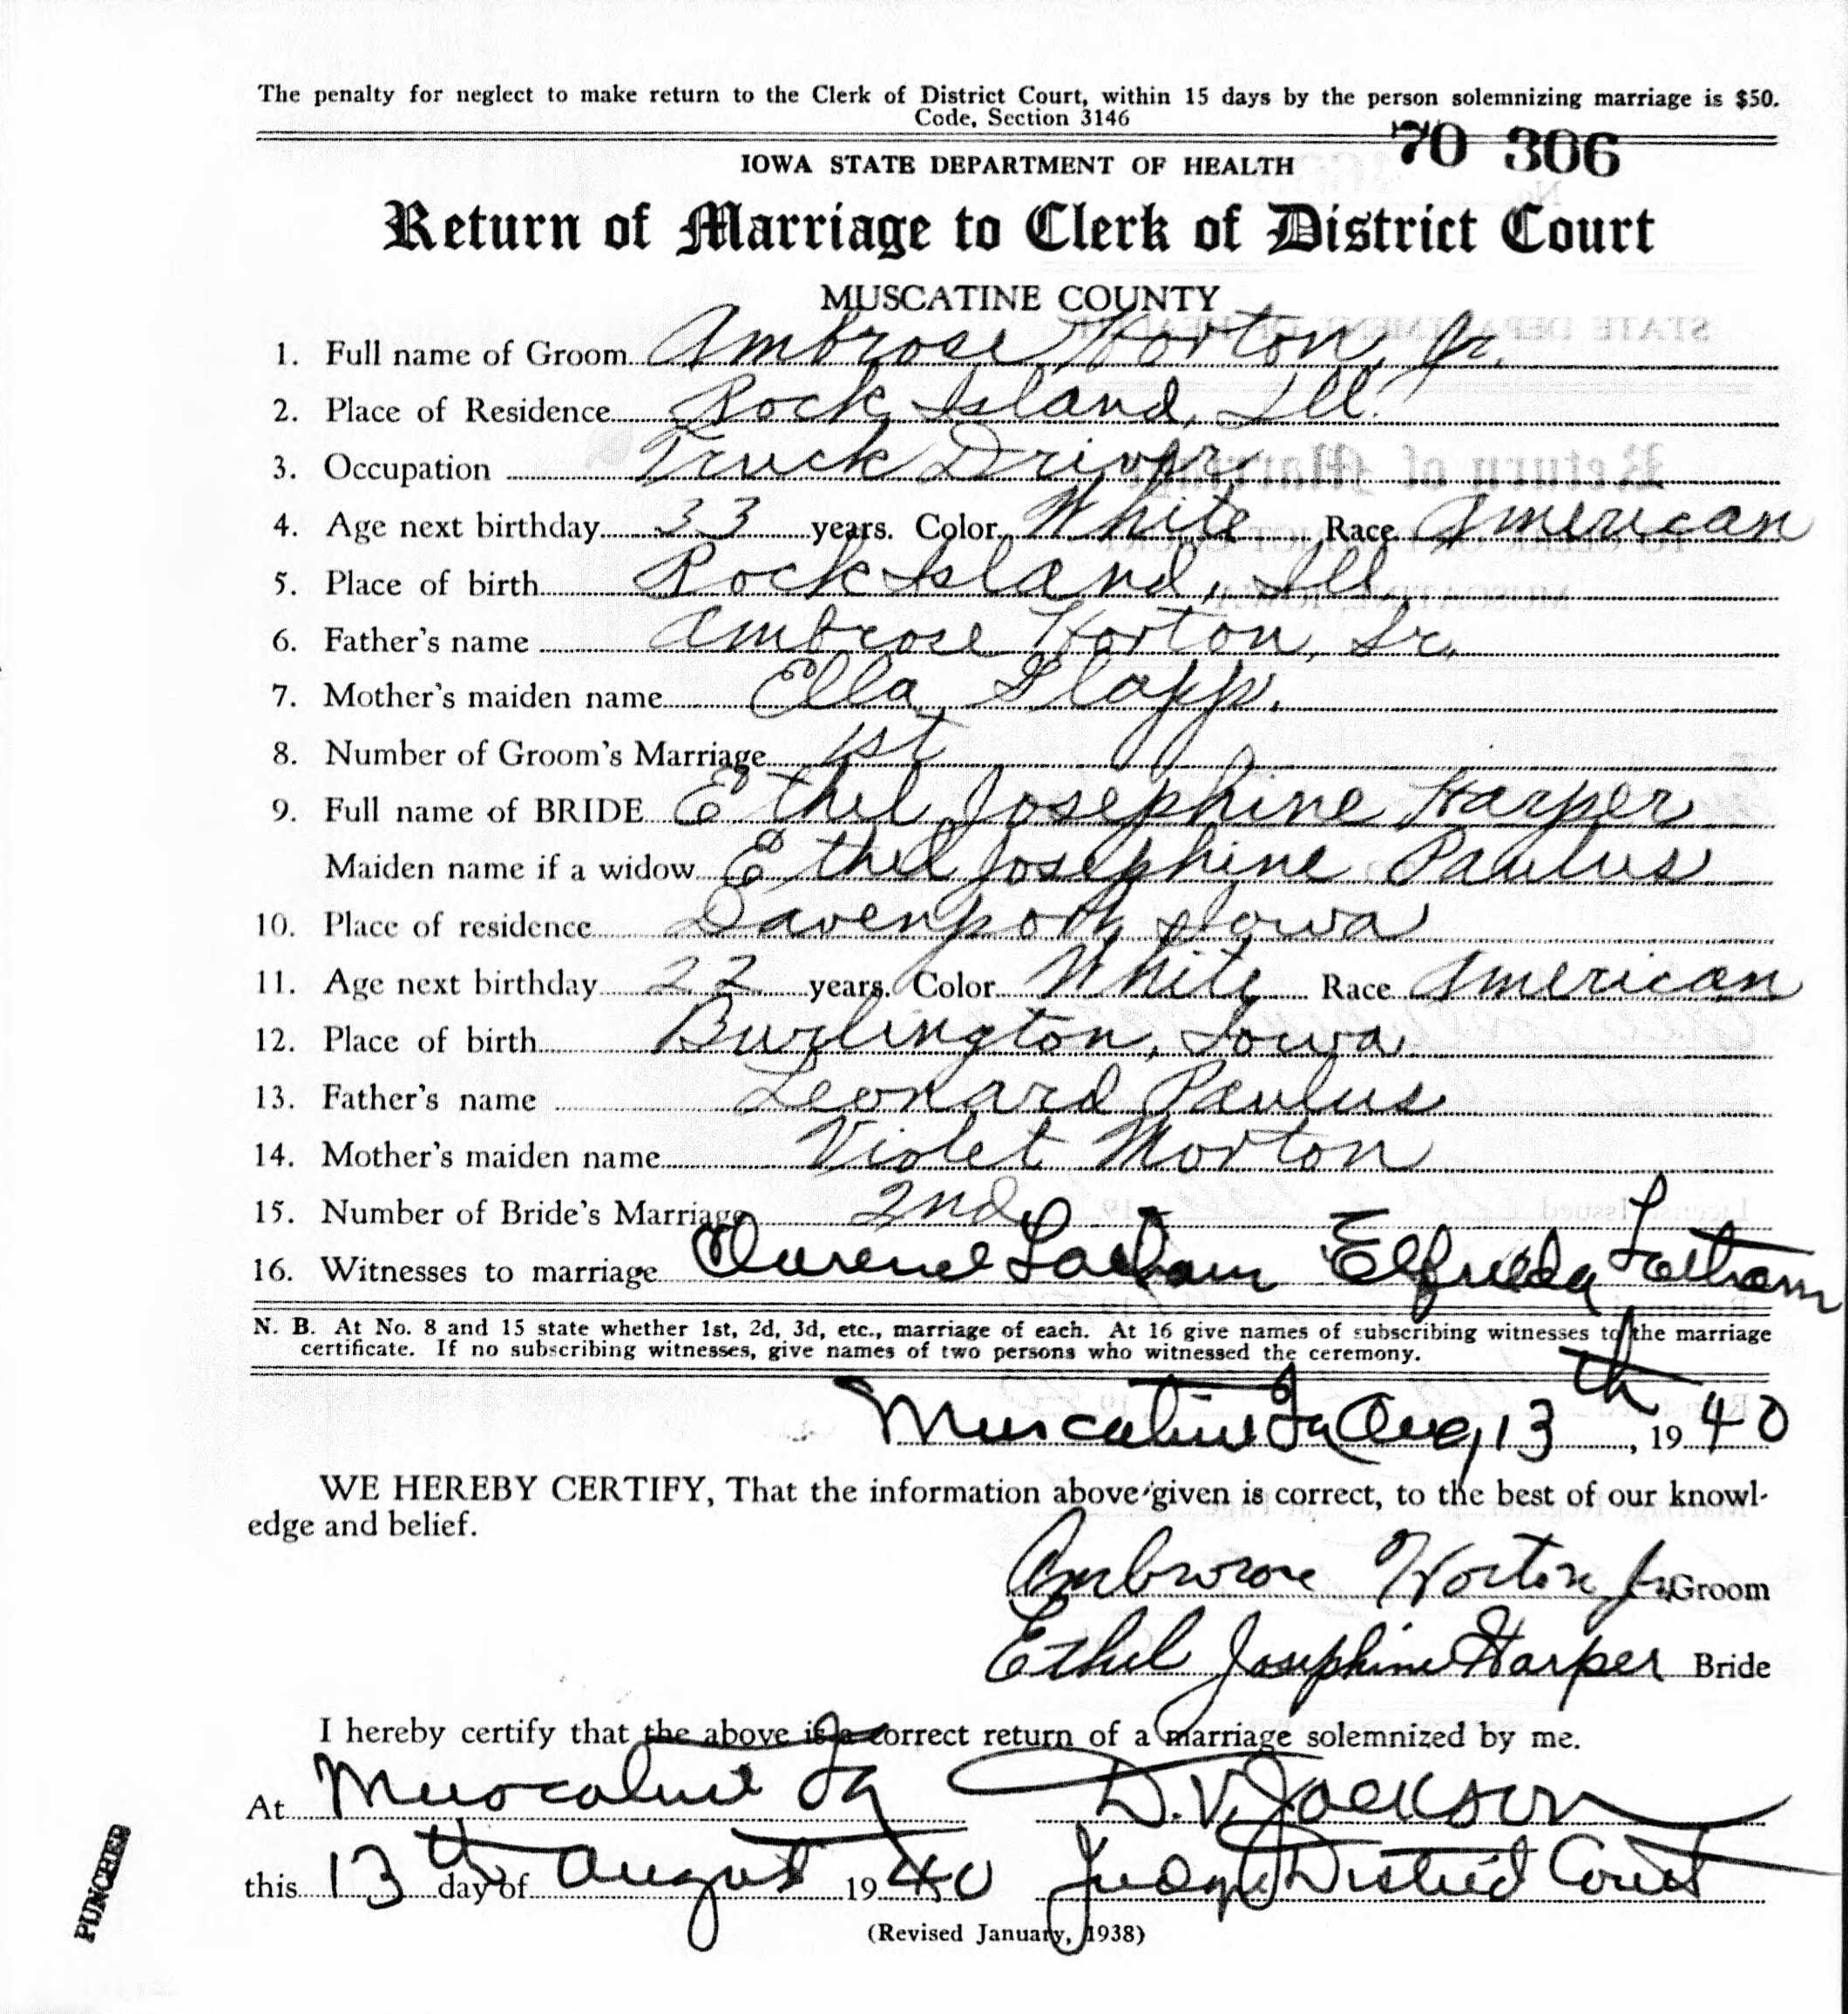 The penalty for neglect to make return to the Clerk of District Court, within 15 days by the person solemnizing marriage is $50.
Code, Section 3146
70 306
IOWA STATE DEPARTMENT OF HEALTH
Return of Marriage to Clerk of District Court
MUSCATINE COUNTY
1. Full name of Groom Ambrose Horton, Jr.
2. Place of Residence Rock Island, Ill.
3. Occupation Truck Driver
4. Age next birthday 33 years. Color White Race American
5. Place of birth Rock Island, Ill.
6. Father's name Ambrose Horton, Sr.
7. Mother's maiden name Ella
8. Number of Groom's Marriage 1st
9. Full name of BRIDE Ethel Josephine Harper
Maiden name if a widow Ethel Josephine Paulus
10. Place of residence Davenport, Iowa
11. Age next birthday 22 years. Color White Race American
12. Place of birth Burlington, Iowa
13. Father's name Leonard Paulus
14. Mother's maiden name Violet Morton
15. Number of Bride's Marriage 2nd
16. Witnesses to marriage Clarence Latham Elfrieda Latham
N. B. At No. 8 and 15 state whether 1st, 2d, 3d, etc., marriage of each. At 16 give names of subscribing witnesses to the marriage
certificate. If no subscribing witnesses, give names of two persons who witnessed the ceremony.
Muscatine Ia Aug 13th, 1940
WE HEREBY CERTIFY, That the information above given is correct, to the best of our knowl-
edge and belief.
Ambrose Horton Jr. Groom
Ethel Josephine Harper Bride
I hereby certify that the above is a correct return of a marriage solemnized by me.
At Muscatine Ia D.V. Jackson
this 13th day of August 1940 Judge District Court
(Revised January, 1938)
PUNCHED